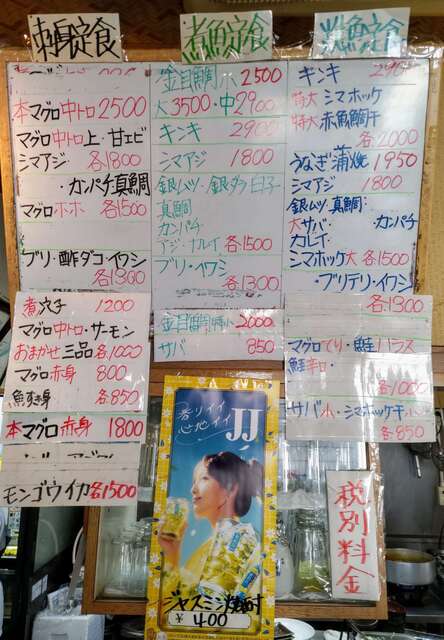 刺身定食
本マグロ中トロ2500
マグロ中トロ上・甘エビ
シマアジ 各1800
・カンパチ真鯛
マグロホホ 各1500
ブリ・酢ダコ・イワシ
各1300
煮穴子 1200
マグロ中トロ・サーモン
おまかせ三品 各1000
マグロ赤身 800
魚すき身 各850
本マグロ赤身 1800
モンゴウイカ各1500
煮魚定食
金目鯛小2500
大3500・中2900
キンキ 2900
シマアジ 1800
銀ムツ・銀タラ白子
真鯛
カンパチ
アジ・カレイ 各1500
ブリ・イワシ
各1300
金目鯛特小2000
サバ 850
香リイイ
心地イイ
JJ
ジャスミン焼酎
¥400
焼魚定食
キンキ 2900
特大シマホッケ
特大赤魚鯛干
各2000
うなぎ蒲焼 1950
シマアジ 1800
銀ムツ・真鯛
大サバ・カンパチ
カレイ
シマホッケ大 各1500
・ブリテリ・イワシ
各1300
マグロてり・鮭ハラス
鮭辛口
各1000
サバ小・シマホッケ干小
各850
税別料金